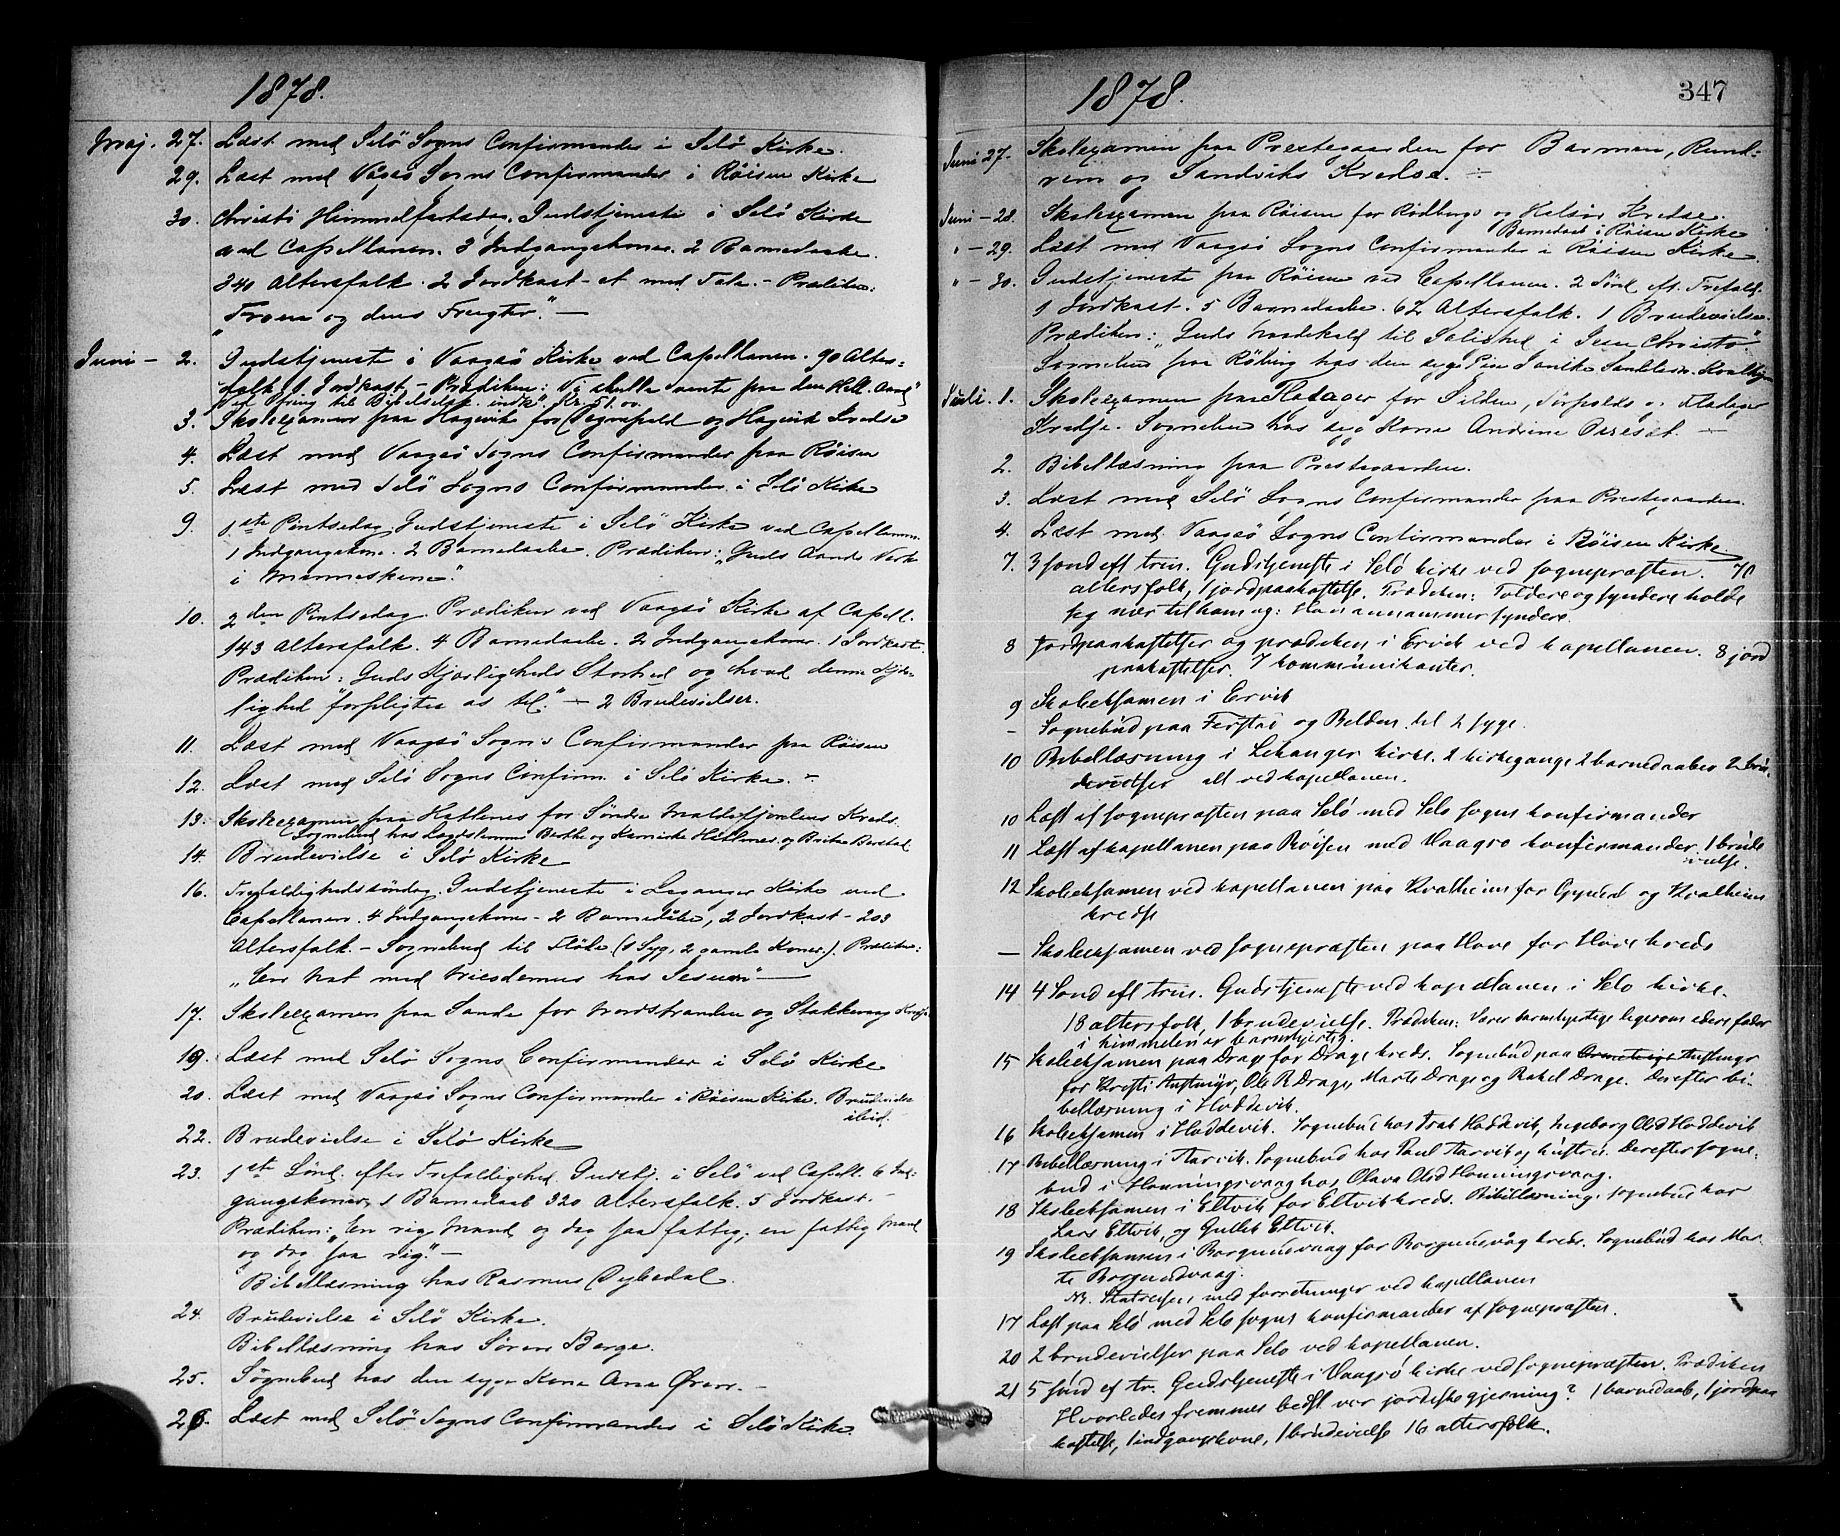 1878.
Maj. 27. Læst med Selö Sogns Confirmander i Selö Kirke.
29. Læst med Vaagsö Sogns Confirmander i Röisen Kirke
30. Christi Himmelfartsdag. Gudstjeneste i Selö Kirke
ved Capellanen. 3 Indgangskoner. 2 Barnedaabe.
340 Altersfolk. 2 Jordkast - et med Tale. - Prædiken:
"Troen og dens Frugter." -
Juni - 2. Gudstjeneste i Vaagsö Kirke ved Capellanen. 90 Alters-
folk. 1 Jordkast. - Prædiken: Vi skulle vente paa den Hell. Aand"
Ved Ofring til Bibelselsk. indk. Kr. 51 ov.
3. Skoleexamen paa Hagevik for Degnepold og Hagevik Kredse
4. Læst med Vaagsö Sogns Confirmander paa Röisen
5. Læst med Selö Sogns Confirmander i Selö Kirke
9. 1ste Pintsedag. Gudstjeneste i Selö Kirke ved Capellanen.
1 Indgangskone. 2 Barnedaabe. Prædiken: "Guds Aands Værk
i Menneskene".
10. 2den Pintsedag. Prædiken ved Vaagsö Kirke af Capell.
143 Altersfolk. 4 Barnedaabe. 2 Indgangskoner. 1 Jordkast.
Prædiken: Guds Kjærligheds Storhed og hvad denne Kjær-
lighed forpligter os til." - 2 Brudevielser.
11. Læst med Vaagsö Sogns Confirmander paa Röisen
12. Læst med Selö Sogns Confirm. i Selö Kirke. -
13. Skoleexamen paa Hatlenes for Söndre Maldefjordens Kreds.
Sognebud hos Berthe og og Brite
14. Brudevielse i Selö Kirke
16. Trefoldighedssöndag. Gudstjeneste i Leganger Kirke ved
Capellanen. 4 Indgangskoner - 2 Barnedaabe, 2 Jordkast - 203
Altersfolk - Sognebud til Flöde (1 Syg, 2 gamle Koner.). Prædiken:
"En Nat med Nicodemus hos Jesum" -
17. Skoleexamen paa Sande for Nordstranden og Stokkevaag Kredse
19. Læst med Selö Sogns Confirmander i Selö Kirke
20. Læst med Vaagsö Sogns Confirmander i Röisen Kirke. Brudevielse
ibid.
22. Brudevielse i Selö Kirke
23. 1ste Sönd. efter Trefoldighed. Gudstj. i Selö ved Capell. 6 Ind-
gangskoner, 1 Barnedaab 320 Altersfolk. 5 Jordkast. -
Prædiken: "En rig Mand og dog saa fattig; en fattig Mand
og dog saa rig". -
Bibellæsning hos Rasmus Dybedal.
24. Brudevielse i Selö Kirke.
Bibellæsning hos Sören Berge.
25. Sognebud hos den syge Kone Ane Ørver. -
26. Læst med Selö Sogns Confirmander i Selö Kirke.
1878.
347
Juni 27. Skoleexamen paa Prestegaarden for Barmen, Rund-
reim og Sandviks Kredse.
Juni - 28. Skoleexamen paa Röisen for Rödbergs og Halsör Kredse.
Barnedaab i Röisen Kirke
" - 29. Læst med Vaagsö Sogns Confirmander i Röisen Kirke.
" - 30. Gudstjeneste paa Röisen ved Capellanen. 2 Sönd. eft. Trefold.
1 Jordkast. 5 Barnedaabe. 62 Altersfolk. 1 Brudevielse.
Prædiken: "Guds Naadekald til Salighed i Jesu Christo".
Sognebud paa hos den syge
Juli. 1. Skoleexamen paa Flatager for Silden, og Flatager
Kredse. Sognebud hos syg Kone Andrine
2. Bibellæsning paa Prestegaarden.
3. Læst med Selö Sogns Confirmander paa Prestegaarden
4. Læst med Vaagsö Sogns Confirmander i Röisen Kirke
7. 3 sønd eft trin. Gudstjeneste i Selö kirke ved sognepræsten. 70
altersfolk, 1 jordpaakastelse. Prædiken: Toldere og syndere holde
sig nær til ham og: Han annammer syndere.
8 Jordpaakastelser og prædiken i Ervik ved kapellanen. 8 jord
paakastelser. 7 kommunikanter.
9 Skoleeksamen i Ervik
- Sognebud paa Ferstad og Belden til 2 syge.
10 Bibellæsning i Lekanger kirke. 2 kirkegange 2 barnedaaber 2 bru-
devielser alt ved kapellanen.
10 Læst af sognepræsten paa Selö med Selo sogns konfirmander
11 Læst af kapellanen paa Röisen med Vaagsø konfirmander. 1 brude
vielse.
12 Skoleeksamen ved kapellanen paa Kvalheim for Oppedal og Kvalheim
kredse
- Skoleeksamen ved sognepræsten paa Hove for Hove kreds
14 4 Sønd eft trin. Gudstjeneste ved kapellanen i Selo kirke.
18 altersfolk, 1 brudevielse. Prædiken: Værer barmhjertige ligesom eders fader
i himmelen er barmhjertig.
15 Skoleeksamen paa Drage for Drage kreds. Sognebud paa
for Ole R Drage, Marte Drage og Rakel Drage. Derefter bi-
bellæsning i Hoddevik.
16 Skoleeksamen i Hoddevik. Sognebud hos Hoddevik, Ingeborg Olsd Hoddevik
17 Bibellæsning i Aarvik. Sognebud hos Paul Aarvik og hustru. Derefter sogne-
bud i Honningsvaag hos Olava Olsd Honningsvaag.
18 Skoleeksamen i Eltvik for Eltvik kreds. Bibellæsning. Sognebud hos
Lars Eltvik og Gullik Eltvik.
19 Skoleeksamen i Borgundvaag for Borgundvåg kreds. Sognebud hos Mar-
te Borgundvaag.
NB. Statreisen med forretninger ved kapellanen
17 Læst paa Selö med Selo sogns konfirmander af sognepræsten.
20 2 brudevielser paa Selo ved kapellanen.
21 5 sønd ef tr. Gudstjeneste i Vaagsö kirke ved sognepræsten. Prædiken
Hvorledes fremmes bedst vor jordiske gjerning? 1 barnedaab, 1 jordpaa
kastelse, 1 indgangskone, 1 brudevielse 16 altersfolk.